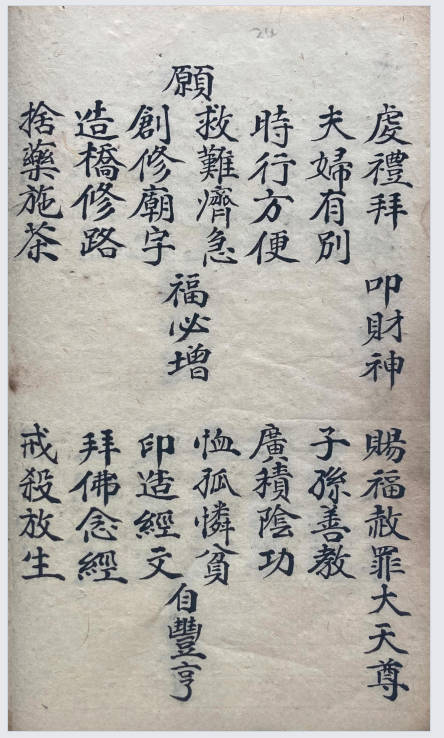 虔禮拜 叩財神 賜福赦罪大天尊
夫婦有別 子孫善教
時行方便 廣積陰功
救難濟急 恤孤憐貧
願 福必增 自豐亨
創修廟宇 印造經文
造橋修路 拜佛念經
捨藥施茶 戒殺放生